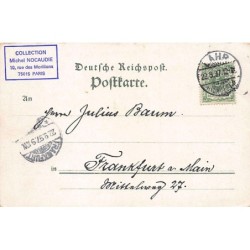 COLLECTION
Michel NOCAUDIE
15, rue des Morillons
75015 PARIS
Deutsche Reichspost.
Postkarte.
An
Herrn Julius Baum.
in
Frankfurt a Main
Mittelweg 27.